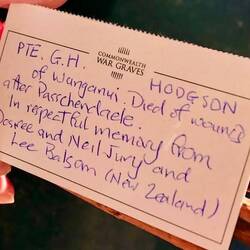 COMMONWEALTH
WAR GRAVES
PTE. G.H. HODGSON
of Wanganui. Died of wounds
after Passchendaele.
In respectful memory from
and Neil Jury and
Lee Balsom (New Zealand)